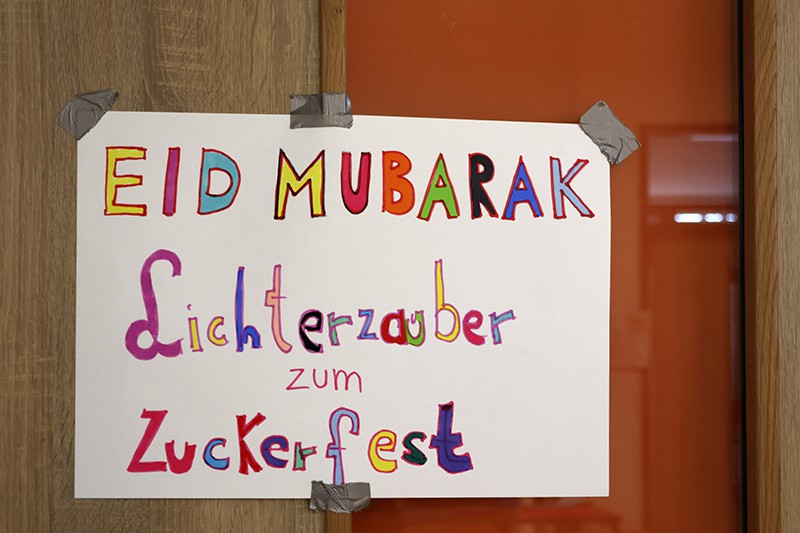 EID MUBARAK
Lichterzauber
zum
Zuckerfest